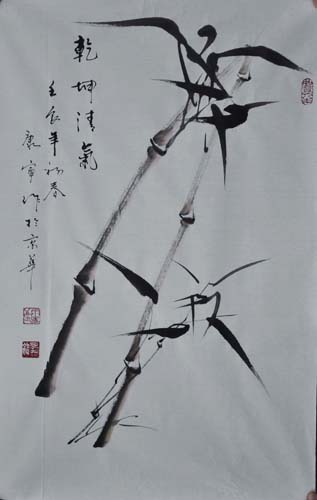 乾坤清氣
壬辰年初春
康寧作於京華